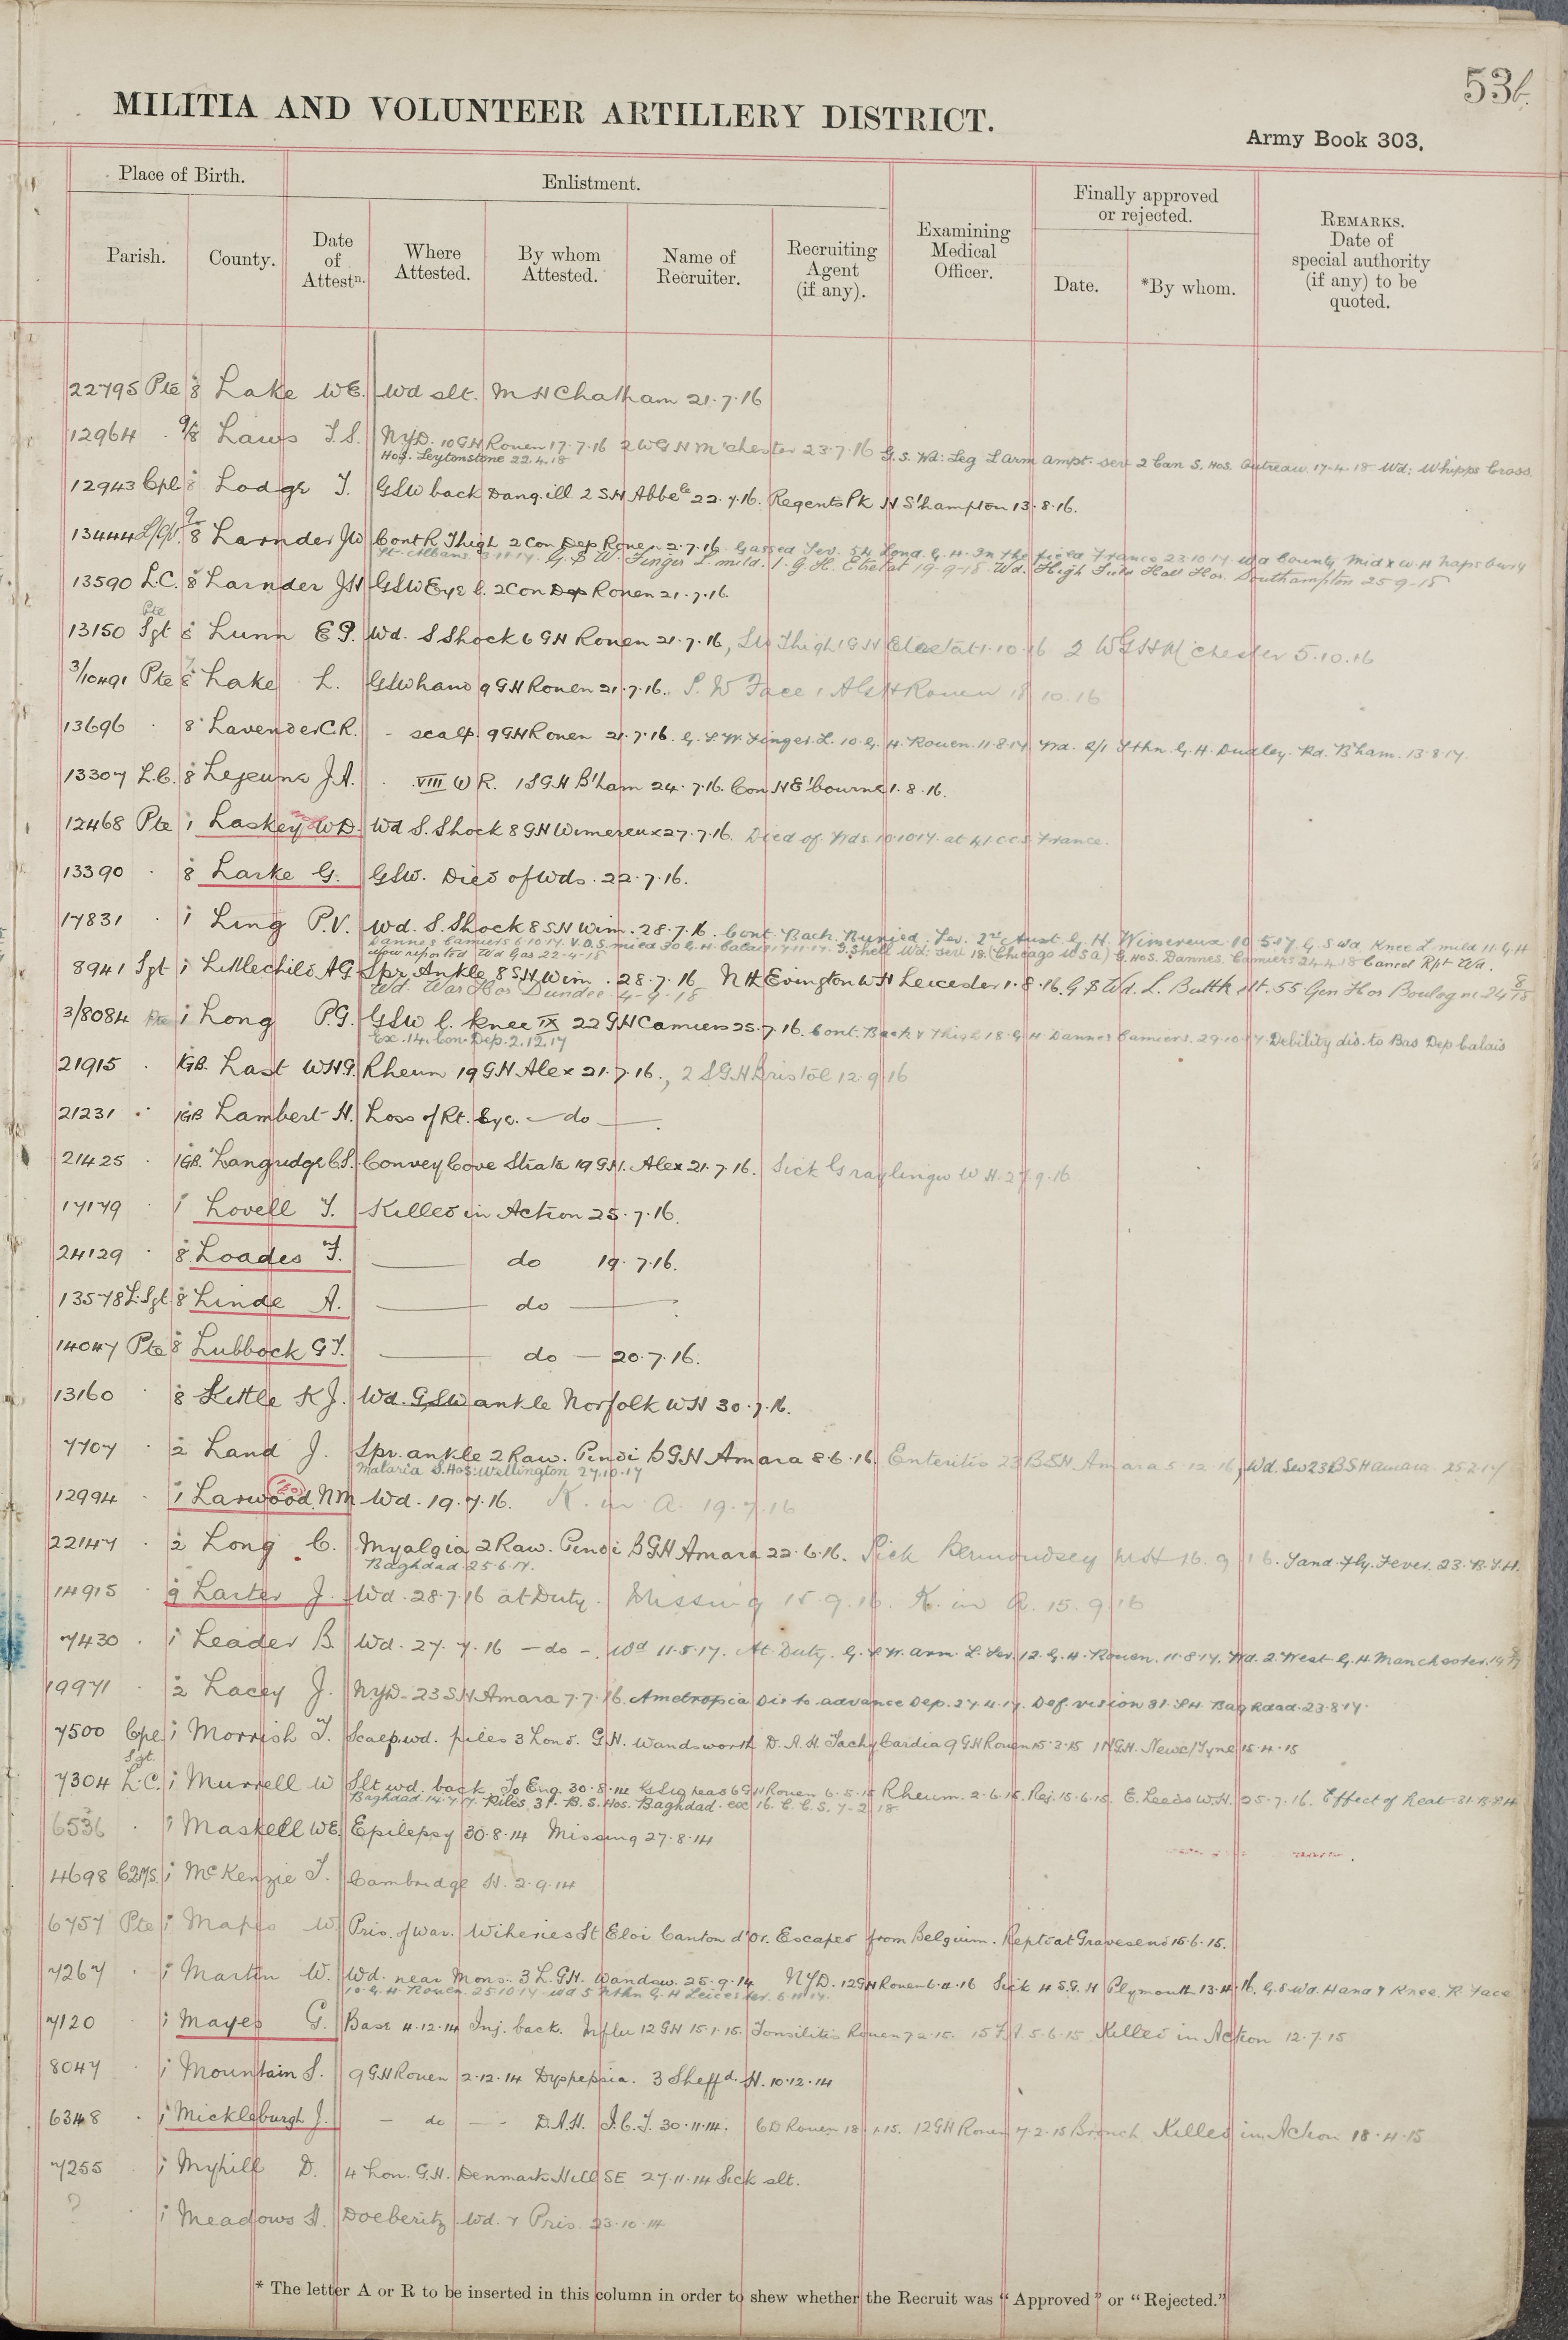 53b.
MILITIA AND VOLUNTEER ARTILLERY DISTRICT.
Army Book 303.
Place of Birth. Enlistment. Finally approved or rejected.
Parish. County. Date of Attestn. Where Attested. By whom Attested. Name of Recruiter. Recruiting Agent (if any). Examining Medical Officer. Date. *By whom. REMARKS. Date of special authority (if any) to be quoted.
22795 Pte 8 Lake WE. Wd slt. M H Chatham 21.7.16
12964 . 9/8 Laws T.S. NYD. 10 GH Rouen 17.7.16 2 WGH M'chester 23.7.16 G.S. Wd: Leg L arm ampt. sev 2 Can S. Hos. Outreau. 17.4.18 Wd: Whipps Cross
Hos. Leytonstone 22.4.18
12943 Cpl 8 Lodge T. GSW back Dang. ill 2 SH Abbele 22.7.16. Regents Pk H S'hampton 13.8.16.
13444 L/Cpl. 9/8 Larnder JW Cont R Thigh 2 Con Dep Rouen 2.7.16. Gassed Sev. 5H Lond. G.H. In the field France 23.10.17 Wd County Midx W H Napsbury
St. Albans. 3.11.17. G S W. Finger L. mild. 1. G H. Etretat 19-9-18 Wd. High Hall Hos. Southampton 25-9-18
13590 L.C. 8 Larnder JH GSW Eye l. 2 Con Dep Rouen 21.7.16.
Pte
13150 Sgt 8 Lunn E G. Wd. S Shock 6 GH Rouen 21.7.16, SW Thigh 1 GH Etretat 1.10.16 2 WGH M'chester 5.10.16
3/10491 Pte 8 Lake L. GSW hand 9 GH Rouen 21.7.16. S. W Face 1 A GH Rouen 18 10.16
13696 . 8 Lavender C.R. - scalp. 9 GH Rouen 21.7.16. G.S.W. Finger. L. 10. G. H. Rouen. 11.8.17. Wd. 2/1 Sthn. G. H. Dudley. Rd. B'ham. 13.8.17.
13307 L.C. 8 Lejeune J.A. . VIII W R. 1 SGH B'ham 24.7.16. Con H E'bourne 1.8.16.
12468 Pte 1 Laskey WD. Wd S. Shock 8 GH Wimereux 27.7.16. Died of Wds. 10.10.17. at 41 CCS France.
13390 . 8 Larke G. GSW. Died of Wds. 22.7.16.
17831 . 1 Ling P.V. Wd. S. Shock 8 SH Wim. 28.7.16. Cont. Back. Buried. Sev. 2nd Aust. G. H. Wimereux. 10.5.17. G.S Wd Knee L. mild 11. G H
Dannes Camiers 6.10.17. V.D.S. mild 30 G.H. Calais 17.11.17. G.Shell Wd: sev 18. (Chicago USA) G. Hos. Dannes. Camiers 24.4.18 Cancel Rpt Wd.
Now reported Wd Gas 22-4-18
8941 Sgt 1 Littlechild A G Spr. Ankle 8 SH Wim. 28.7.16 NH Evington WH Leicester 1.8.16. G S Wd. L. Buttk slt. 55 Gen Hos Boulogne 24 8/18
Wd. War Hos Dundee. 4-9-18
3/8084 Pte 1 Long P.G. GSW l. knee IX 22 GH Camiers 25.7.16. Cont. Back & Thigh 18. G H Dannes Camiers. 29.10.17. Debility dis. to Bas Dep Calais
Ex. 14. Con. Dep. 2.12.17
21915 . 1GB. Last WHG. Rheum 19 GH Alex 21.7.16., 2 SGH Bristol 12.9.16
21231 . 1GB Lambert H. Loss of Rt. Eye. — do — .
21425 . 1GB. Langridge C S. Convey Cove Strata 19 G.H. Alex 21.7.16. Sick Graylingw W H. 27.9.16
17179 . 1 Lovell T. Killed in Action 25.7.16.
24129 . 8 Loades F. — do 19.7.16.
13578 L.Sgt 8 Linde A. — do — .
14047 Pte 8 Lubbock G T. — do — 20.7.16.
13160 . 8 Kettle K J. Wd. GSW ankle Norfolk WH 30.7.16.
7707 . 2 Land J. Spr. ankle 2 Raw. Pindi B GH Amara 8.6.16. Enteritis 23 BSH Amara 5.12.16, Wd. Sev 23 BSH amara 25.2.17
Malaria S. Hos. Wellington 27.10.17
12994 . 1 Larwood NM Wd. 19.7.16. K. in A. 19.7.16
22147 . 2 Long C. Myalgia 2 Raw. Pindi B GH Amara 22.6.16. Sick Bermondsey Mil H 16.9.16. Sand-Fly. Fever. 23. B.S.H.
Baghdad 25.6.17.
14915 . 9 Larter J. Wd. 28.7.16 at Duty. Missing 15.9.16. K. in A. 15.9.16
7430 . 1 Leader B. Wd. 27.7.16 — do —. Wd 11.5.17. At Duty. G.S.W. arm. L. Sev. 12. G. H. Rouen. 11.8.17. Wd. 2. West. G. H. Manchester. 14 8/17
19971 . 2 Lacey J. NYD. 23 SH Amara 7.7.16. Ametropia Dis to advance Dep. 27.4.17. Def. vision 31. SH. Baghdad. 23.8.17.
7500 Cpl 1 Morrish T. Scalp wd. piles 3 Lond. G.H. Wandsworth D.A.H. Tachy Cardia 9 GH Rouen 15.3.15 1 NGH. Newc/Tyne 15.4.15
Sgt.
7304 L.C. 1 Murrell W Slt wd. back. To Eng. 30.8.14 GSW head 6 GH Rouen 6.5.15 Rheum. 2.6.15. Rej. 15.6.15. E. Leeds W.H. 25.7.16. Effect of Heat 31 B.S.H.
Baghdad. 14.7.17. Piles 31. B. S. Hos. Baghdad. ex 16. C. C. S. 7-2-18
6536 . 1 Maskell WE. Epilepsy 30.8.14 Missing 27.8.14
4698 CQMS. 1 McKenzie T. Cambridge H. 2.9.14
6757 Pte 1 Mapes W. Pris. of War. Wiheries St Eloi Canton d'Or. Escaped from Belgium. Reptd at Gravesend 15.6.15.
7267 . 1 Martin W. Wd. near Mons. 3 L. GH. Wandsw. 25.9.14 NYD. 12 GH Rouen 6.4.16 Sick 4 S.G.H Plymouth 13.4.16. G.S Wd. Hand & Knee. R Face
10. G. H. Rouen. 25.10.17. Wd 5 Nthn G.H Leicester. 6.11.17.
7120 . 1 Mayes G. Base 4.12.14 Inj. back. Influ 12 GH 15.1.15. Tonsilitis Rouen 7.2.15. 15 F.A. 5.6.15 Killed in Action 12.7.15
8047 . 1 Mountain S. 9 GH Rouen 2.12.14 Dyspepsia. 3 Sheffd. H. 10.12.14
6348 . 1 Mickleburgh J. — do — D.A.H. I.C.T. 30.11.14. CD Rouen 18.1.15. 12 GH Rouen 7.2.15 Bronch Killed in Action 18.4.15
7255 . 1 Myhill D. 4 Lon. G.H. Denmark Hill SE 27.11.14 Sick slt.
? . 1 Meadows H. Doeberitz Wd. & Pris. 23.10.14
* The letter A or R to be inserted in this column in order to shew whether the Recruit was “Approved” or “Rejected.”